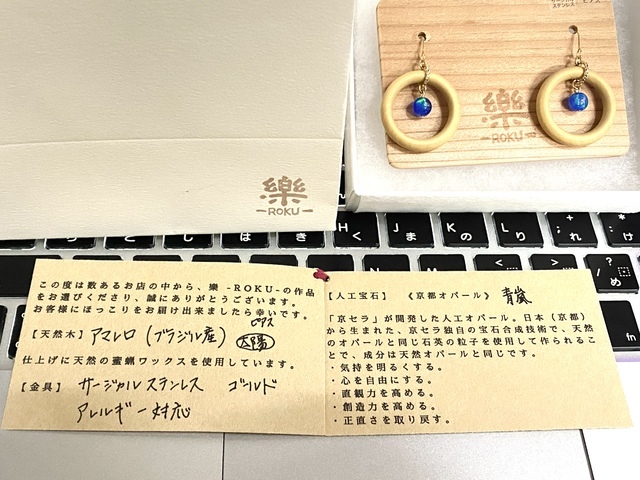 サージカル
ステンレス
樂
-ROKU-
樂
-ROKU-
この度は数あるお店の中から、樂 -ROKU-の作品
をお選びくださり、誠にありがとうございます。
お客様にほっこりをお届け出来ましたら幸いです。
ピアス
【天然木】 アマレロ (ブラジル産) 太陽
仕上げに天然の蜜蝋ワックスを使用しています。
【金具】 サージカルステンレス ゴールド
アレルギー対応
【人工宝石】 《京都オパール》 青嵐
「京セラ」が開発した人工オパール。日本(京都)
から生まれた、京セラ独自の宝石合成技術で、天然
のオパールと同じ石英の粒子を使用して作られるこ
とで、成分は天然オパールと同じです。
・気持を明るくする。
・心を自由にする。
・直観力を高める。
・創造力を高める。
・正直さを取り戻す。
は
H
く
J
ま
K
の
L
り
+
;
れ
*
:
け
?
/
め
fn